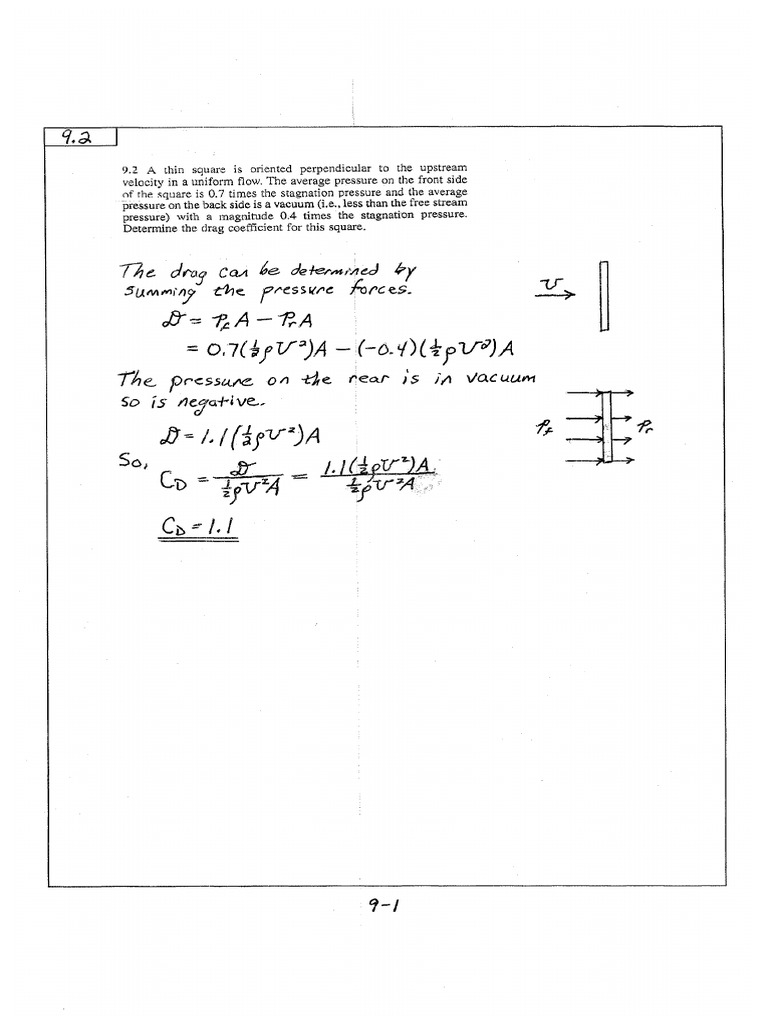 9.2
9.2 A thin square is oriented perpendicular to the upstream
velocity in a uniform flow. The average pressure on the front side
of the square is 0.7 times the stagnation pressure and the average
pressure on the back side is a vacuum (i.e., less than the free stream
pressure) with a magnitude 0.4 times the stagnation pressure.
Determine the drag coefficient for this square.
The drag can be determined by
summing the pressure forces.
U
𝒟 = p_f A − p_r A
= 0.7(½ρU²)A − (−0.4)(½ρU²)A
The pressure on the rear is in vacuum
so is negative.
p_f p_r
𝒟 = 1.1(½ρU²)A
So,
C_D = 𝒟 / ½ρU²A = 1.1(½ρU²)A / ½ρU²A
C_D = 1.1
9-1